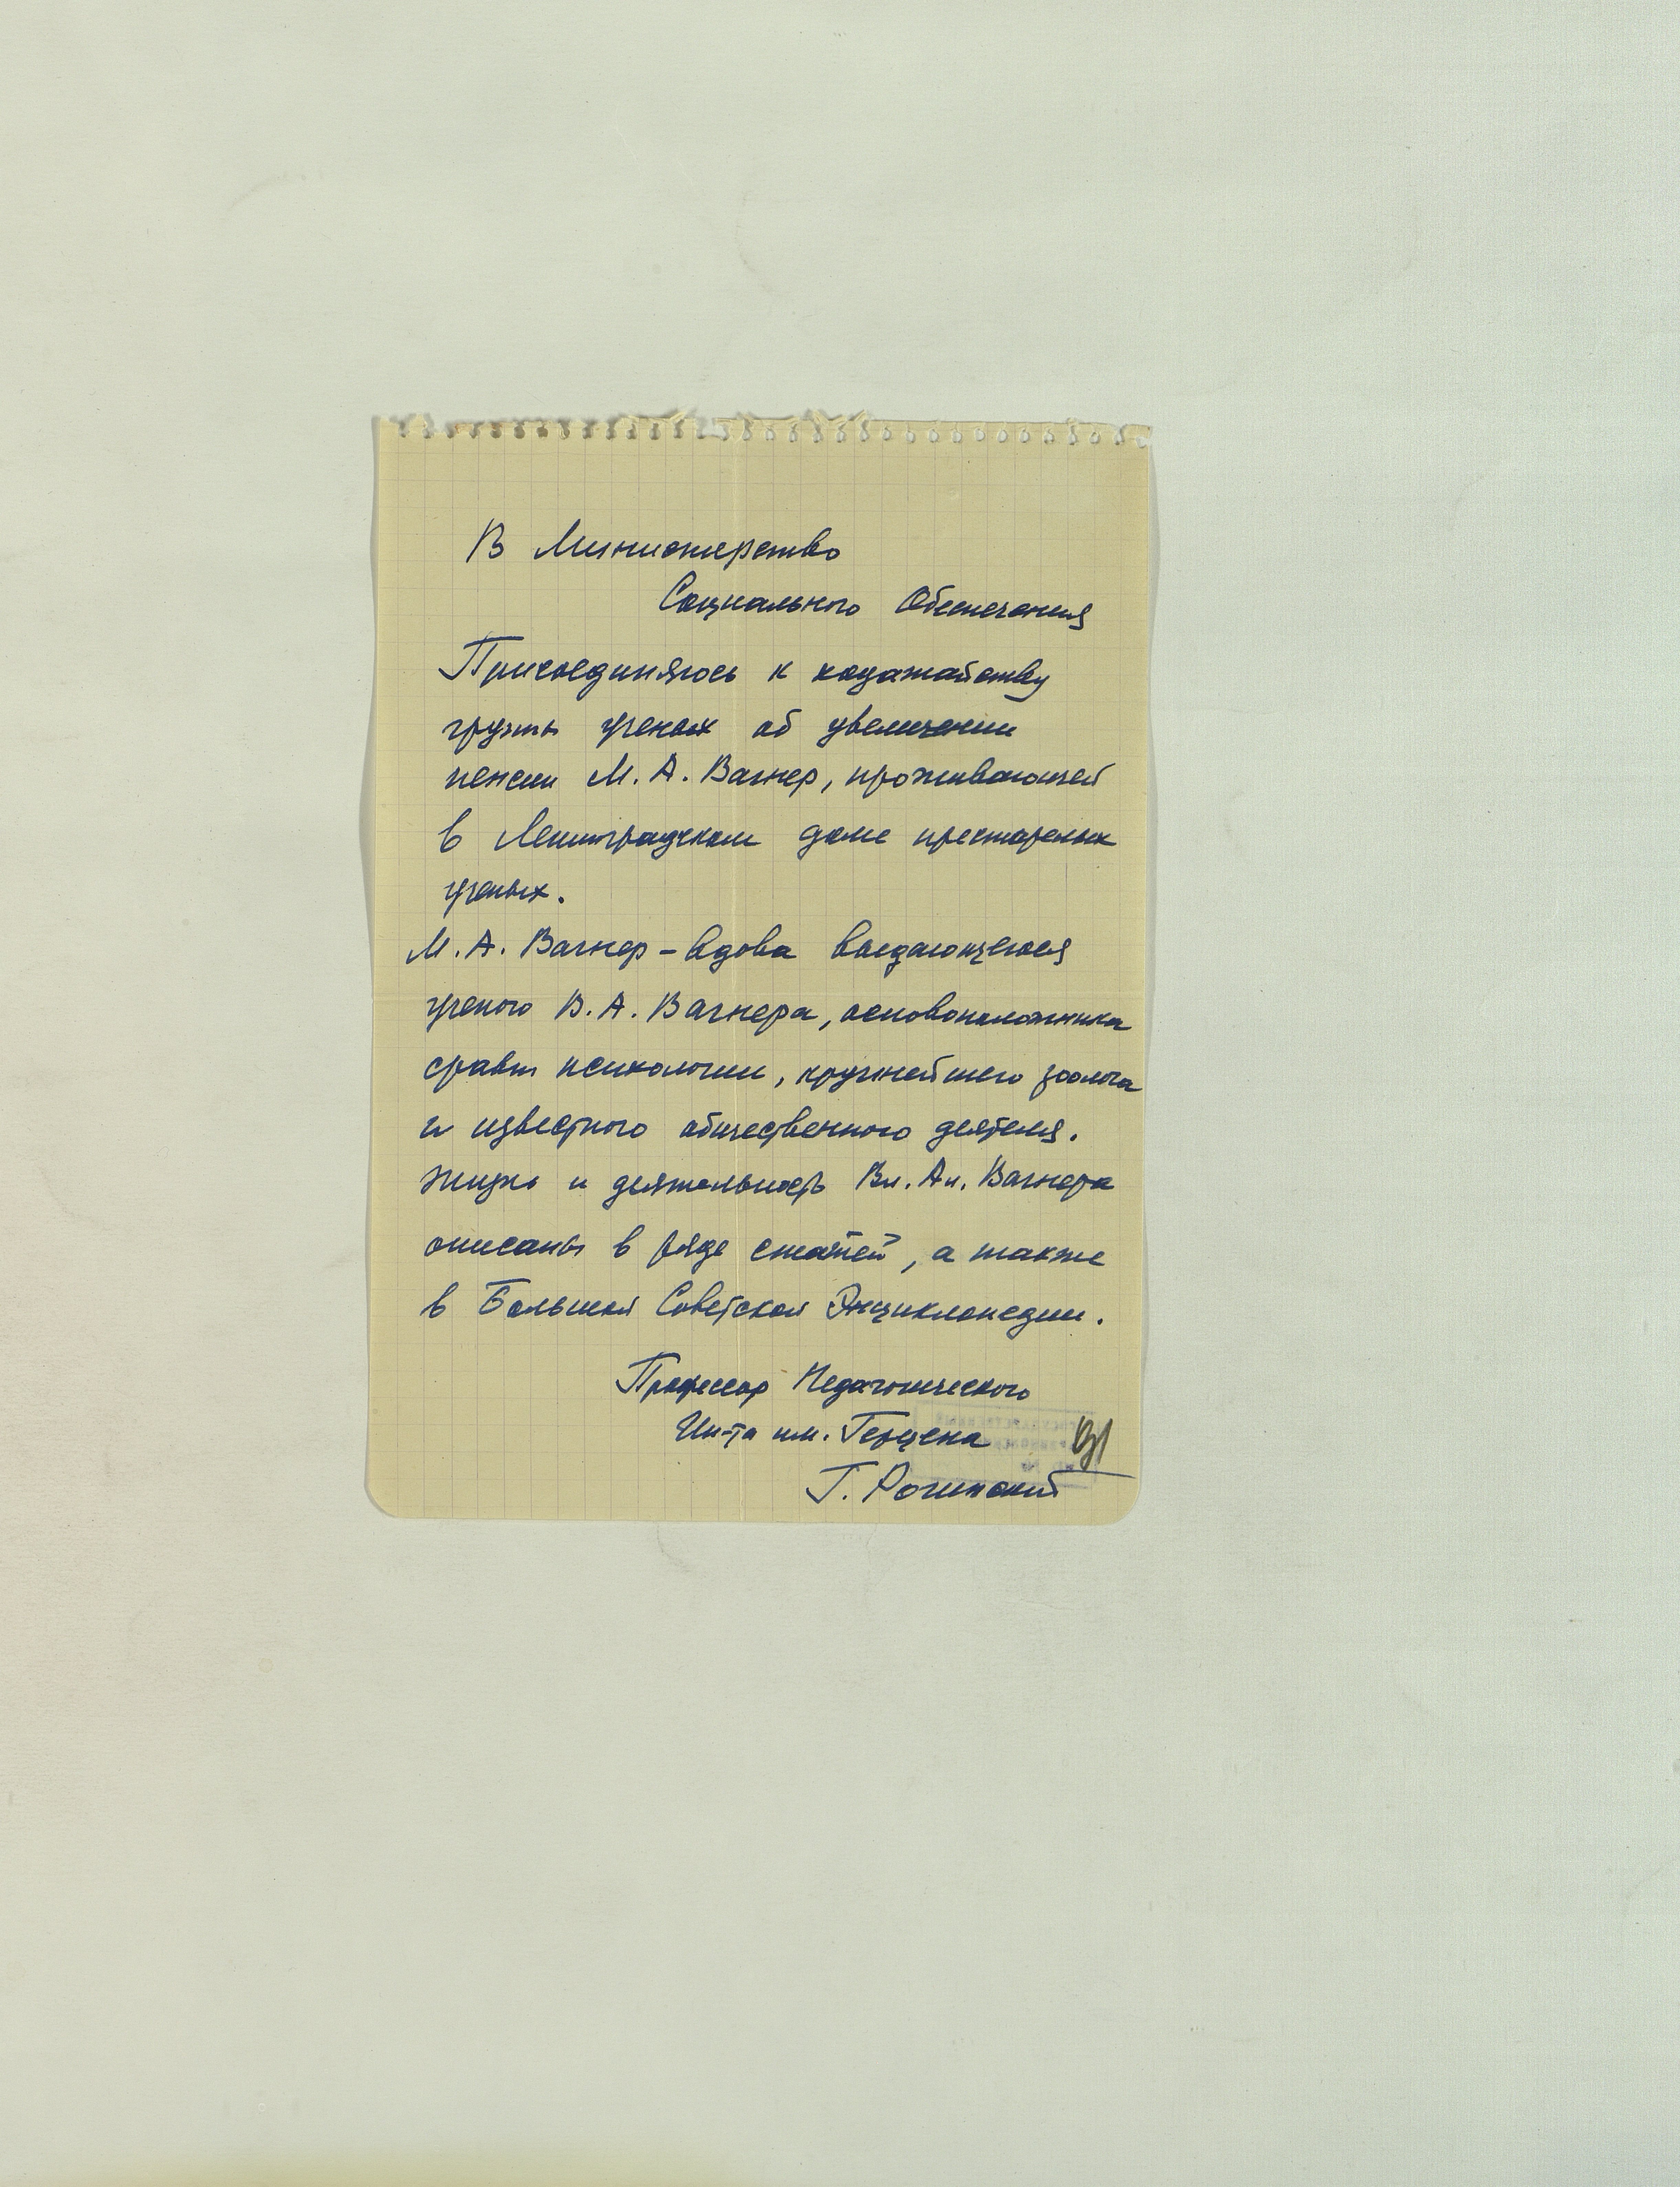 В Министерство
Социального Обеспечения
Присоединяюсь к ходатайству
группы ученых об увеличении
пенсии М. А. Вагнер, проживающей
в Ленинградском доме престарелых
ученых.
М. А. Вагнер – вдова выдающегося
ученого В. А. Вагнера, основоположника
сравн психологии, крупнейшего зоолога
и известного общественного деятеля.
Жизнь и деятельность Вл. Ал. Вагнера
описаны в ряде статей, а также
в Большой Советской Энциклопедии.
Профессор Педагогического
Ин-та им. Герцена
Г. Рогинский